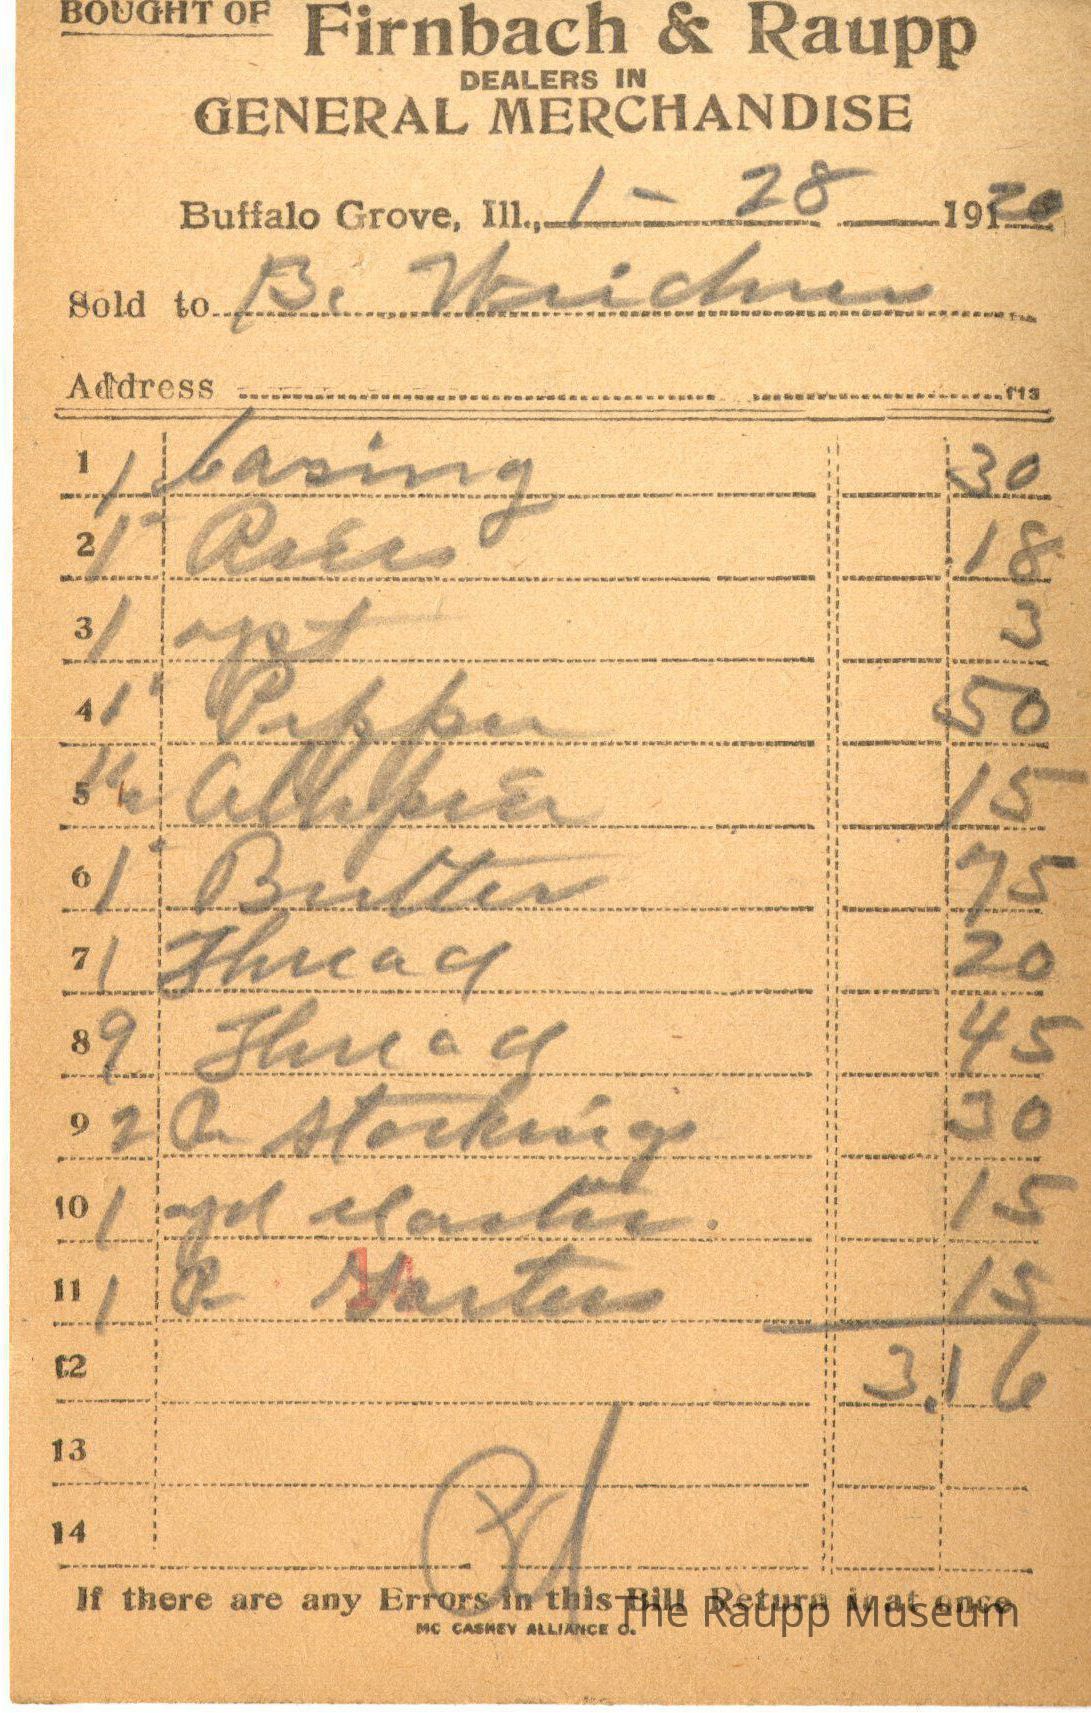 BOUGHT OF Firnbach & Raupp
DEALERS IN
GENERAL MERCHANDISE
Buffalo Grove, Ill., 1 - 28 191 20
Sold to B. Weidner
Address
F13
1 1 Casing 30
2 1" 18
3 1 yst 3
4 1" Pepper 50
5 15
6 1" Butter 75
7 1 Thread 20
8 9 Thread 45
9 2 Pr Stockings 30
10 1 yd elastic. 15
11 1 Pr Garters 15
12 3.16
13
14
Pd
If there are any Errors in this Bill Return it at once
MC CASKEY ALLIANCE O.
The Raupp Museum